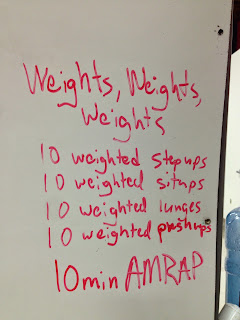 Weights, Weights,
Weights
10 weighted stepups
10 weighted situps
10 weighted lunges
10 weighted pushups
10min AMRAP